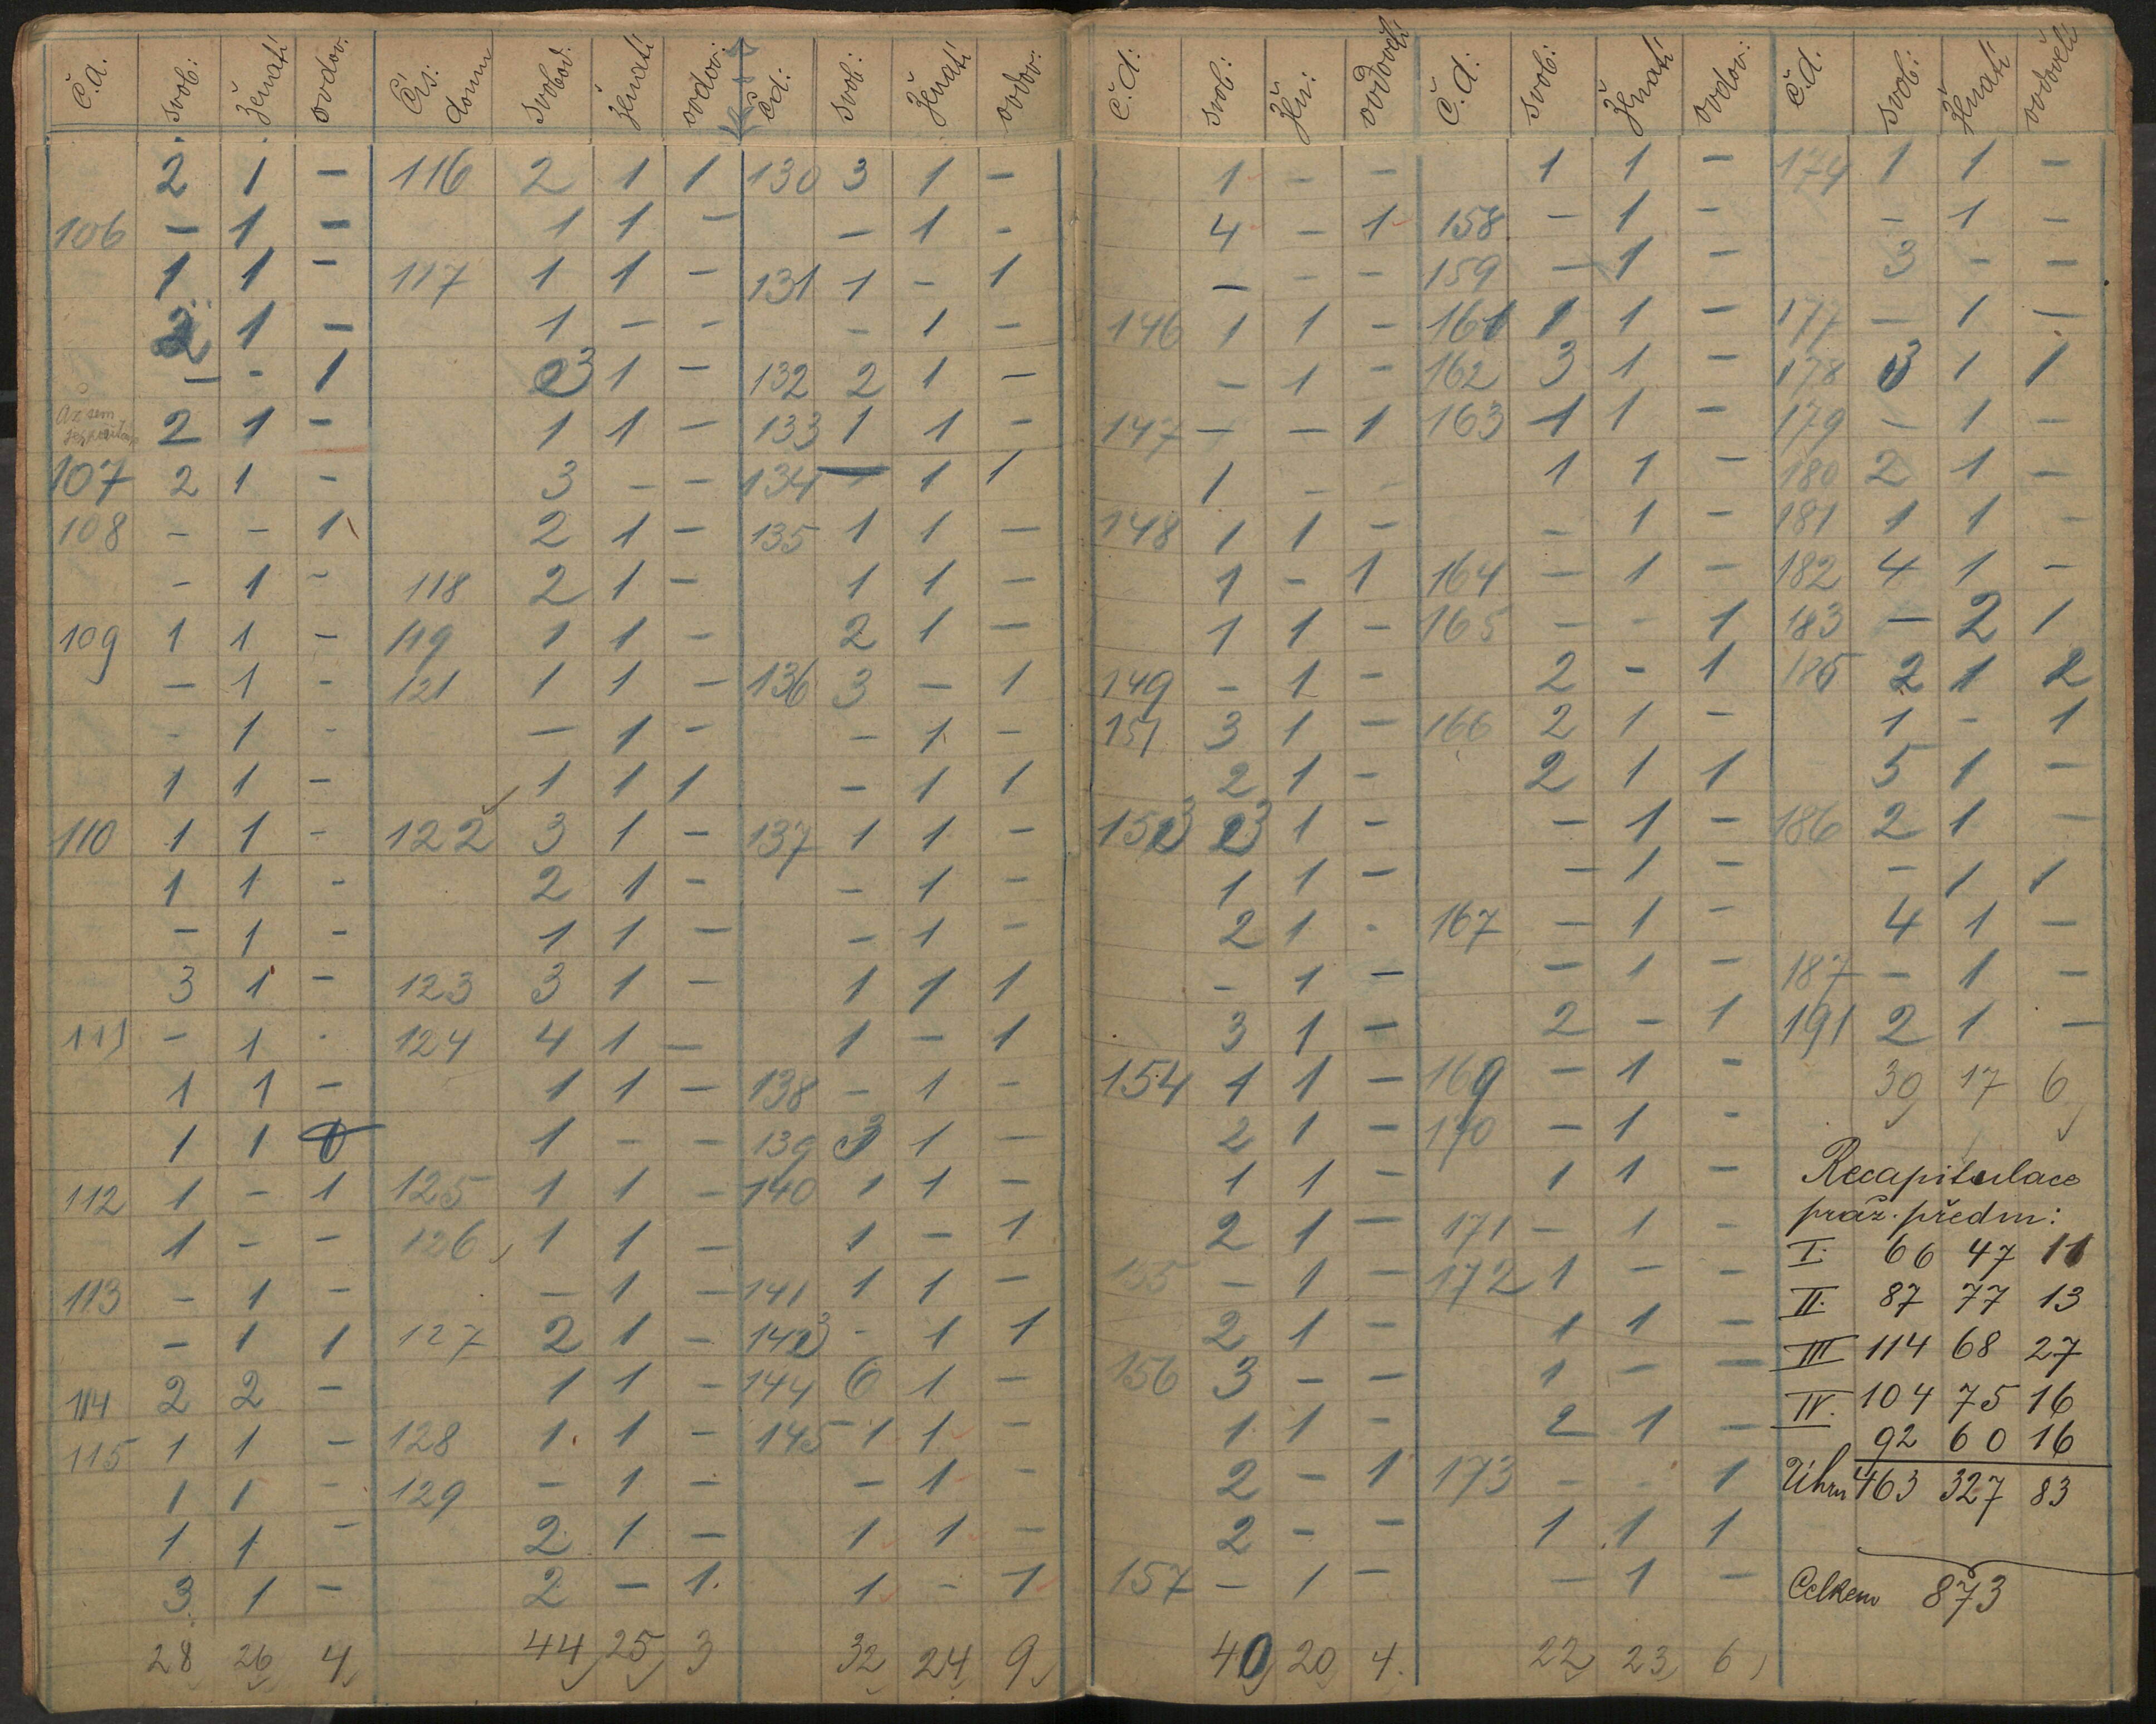 Č.d. svob: ženatí ovdov. Čís. domu svobod. ženatí ovdov: Č.d: svob: ženatí ovdov: Č.d: svob: žen: ovdovělí Č.d: svob: ženatí ovdov: Č.d. svob: ženatí ovdovělí
2 1 – 116 2 1 1 130 3 1 – 1 – – 1 1 – 174 1 1 –
106 – 1 – 1 1 – – 1 – 4 – 1 158 – 1 – – 1 –
1 1 – 117 1 1 – 131 1 – 1 – – – 159 – 1 – 3 – –
2 1 – 1 – – – 1 – 146 1 1 – 161 1 1 – 177 – 1 –
– – 1 3 1 – 132 2 1 – – 1 – 162 3 1 – 178 3 1 1
Až sem
2 1 – 1 1 – 133 1 1 – 147 – – 1 163 1 1 – 179 – 1 –
107 2 1 – 3 – – 134 – 1 1 1 – – 1 1 – 180 2 1 –
108 – – 1 2 1 – 135 1 1 – 148 1 1 – – 1 – 181 1 1 –
– 1 – 118 2 1 – 1 1 – 1 – 1 164 – 1 – 182 4 1 –
109 1 1 – 119 1 1 – 2 1 – 1 1 – 165 – – 1 183 – 2 1
– 1 – 121 1 1 – 136 3 – 1 149 – 1 – 2 – 1 185 2 1 2
– 1 – – 1 – – 1 – 151 3 1 – 166 2 1 – 1 – 1
1 1 – 1 1 1 – 1 1 2 1 – 2 1 1 5 1 –
110 1 1 – 122 3 1 – 137 1 1 – 153 3 1 – – 1 – 186 2 1 –
1 1 – 2 1 – – 1 – 1 1 – – 1 – – 1 1
– 1 – 1 1 – – 1 – 2 1 – 167 – 1 – 4 1 –
3 1 – 123 3 1 – 1 1 1 – 1 – – 1 – 187 – 1 –
111 – 1 – 124 4 1 – 1 – 1 3 1 – 2 – 1 191 2 1 –
1 1 – 1 1 – 138 – 1 – 154 1 1 – 169 – 1 – 30 17 6
1 1 1 – – 139 3 1 – 2 1 – 170 – 1 –
112 1 – 1 125 1 1 – 140 1 1 – 1 1 – 1 1 – Recapitulace
1 – – 126 1 1 – 1 – 1 2 1 – 171 – 1 – práz. předm:
113 – 1 – – 1 – 141 1 1 – 155 – 1 – 172 1 – – I. 66 47 11
– 1 1 127 2 1 – 143 – 1 1 2 1 – 1 1 – II. 87 77 13
114 2 2 – 1 1 – 144 6 1 – 156 3 – – 1 – – III 114 68 27
115 1 1 – 128 1 1 – 145 1 1 – 1 1 – 2 1 – IV. 104 75 16
92 60 16
1 1 – 129 – 1 – – 1 – 2 – 1 173 – – 1 Úhrn 463 327 83
1 1 – 2 1 – 1 1 – 2 – – 1 1 1
3 1 – 2 – 1 1 – 1 157 – 1 – – 1 – Celkem 873
28 26 4 44 25 3 32 24 9 40 20 4. 22 23 6